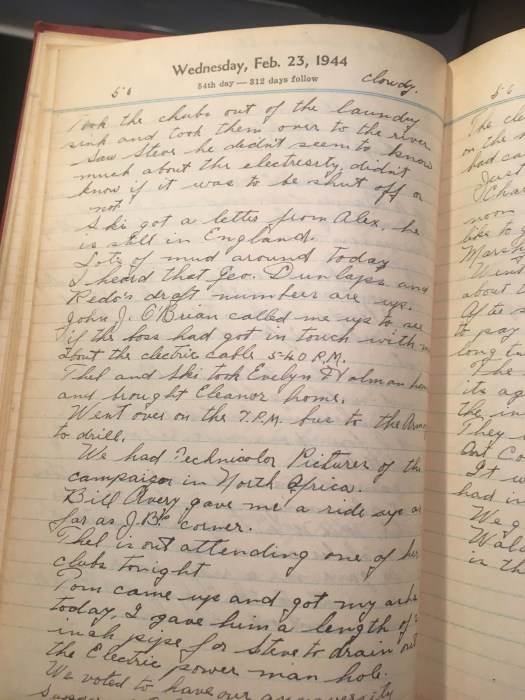 Wednesday, Feb. 23, 1944
54th day — 312 days follow
56
clowdy.
Took the chubs out of the laundry
sink and took them over to the river
Saw Steve he dedn't seem to know
much about the electresity didn't
know if it was to be shut off or
not.
Ski got a letter from Alex, he
is still in England.
Lots of mud around today
I heard that Geo. Dunlaps and
Redo's draft number are up.
John J. O'Brian called me up to see
if the boss had got in touch with
about the electric cable 5-40 P.M.
Thel and Ski took Evelyn Holman
and brought Eleanor home.
Went over on the 7.P.M. bus to the
to drill.
We had Technicolor Pictures of the
campaign in North Africa.
Bill Avery gave me a ride up as
far as J.B's corner.
Thel is out attending one of her
clubs tonight
Tom came up and got my
today, I gave him a length of
inch pipe for Steve to drain out
the Electric power man hole.
We voted to have our
56
The
on the
had
Just
noon
like to
Went
about
After
to pay
long
of the
its
the
They
Out Co
It
had
We
is